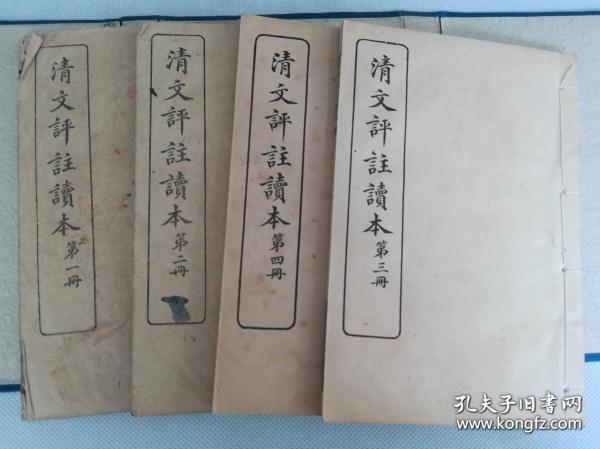 清文評註讀本 第一冊
清文評註讀本 第二冊
清文評註讀本 第四冊
清文評註讀本 第三冊
孔夫子旧书网
www.kongfz.com